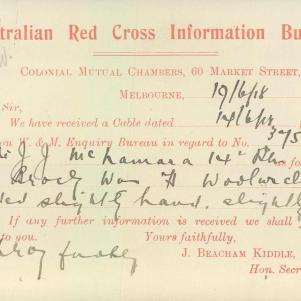 stralian Red Cross Information Bu
COLONIAL MUTUAL CHAMBERS, 60 MARKET STREET,
MELBOURNE, 19/6/18
Sir,
We have received a Cable dated 14/6/18
on W. & M. Enquiry Bureau in regard to No. 375
J. J. McNamara 14th Bn
Brock War H Woolwich
ded slightly hand, slightly
If any further information is received we shall
to you. Yours faithfully,
J. BEACHAM KIDDLE,
Hon. Secr